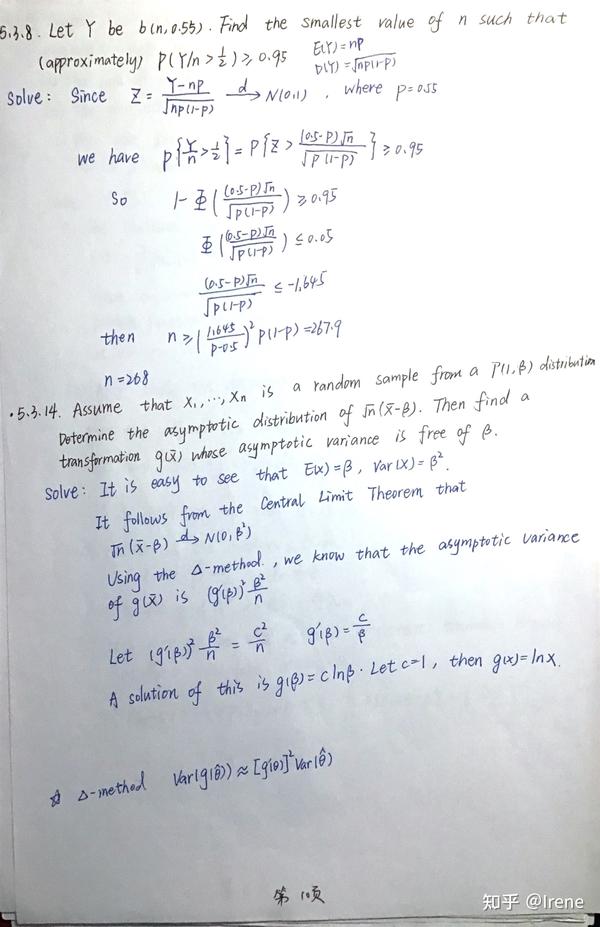 5.3.8. Let Y be b(n, 0.55). Find the smallest value of n such that
(approximately) P(Y/n > 1/2) ≥ 0.95
E(Y) = np
D(Y) = √np(1-p)
Solve: Since Z = (Y-np)/√(np(1-p)) →d N(0,1), where p=0.55
we have P{Y/n > 1/2} = P{Z > (0.5-P)√n/√(P(1-P))} ≥ 0.95
So 1-Φ((0.5-P)√n/√(P(1-P))) ≥ 0.95
Φ((0.5-P)√n/√(P(1-P))) ≤ 0.05
(0.5-P)√n/√(P(1-P)) ≤ -1.645
then n ≥ (1.645/(P-0.5))² P(1-P) = 267.9
n=268
·5.3.14. Assume that X₁, ..., Xn is a random sample from a Γ(1, β) distribution
Determine the asymptotic distribution of √n(x̄-β). Then find a
transformation g(x̄) whose asymptotic variance is free of β.
Solve: It is easy to see that E(X)=β, Var(X)=β².
It follows from the Central Limit Theorem that
√n(x̄-β) →d N(0, β²)
Using the Δ-method, we know that the asymptotic variance
of g(x̄) is (g'(β))² β²/n
Let (g'(β))² β²/n = c²/n g'(β) = c/β
A solution of this is g(β) = c lnβ. Let c=1, then g(x)=lnx.
☆ Δ-method Var(g(θ̂)) ≈ [g'(θ)]² Var(θ̂)
第 10页
知乎 @Irene